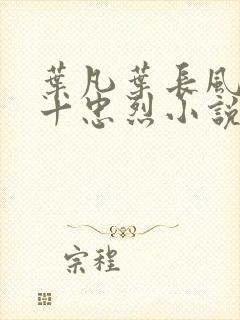 葉凡葉長風
十忠烈小說
宗程